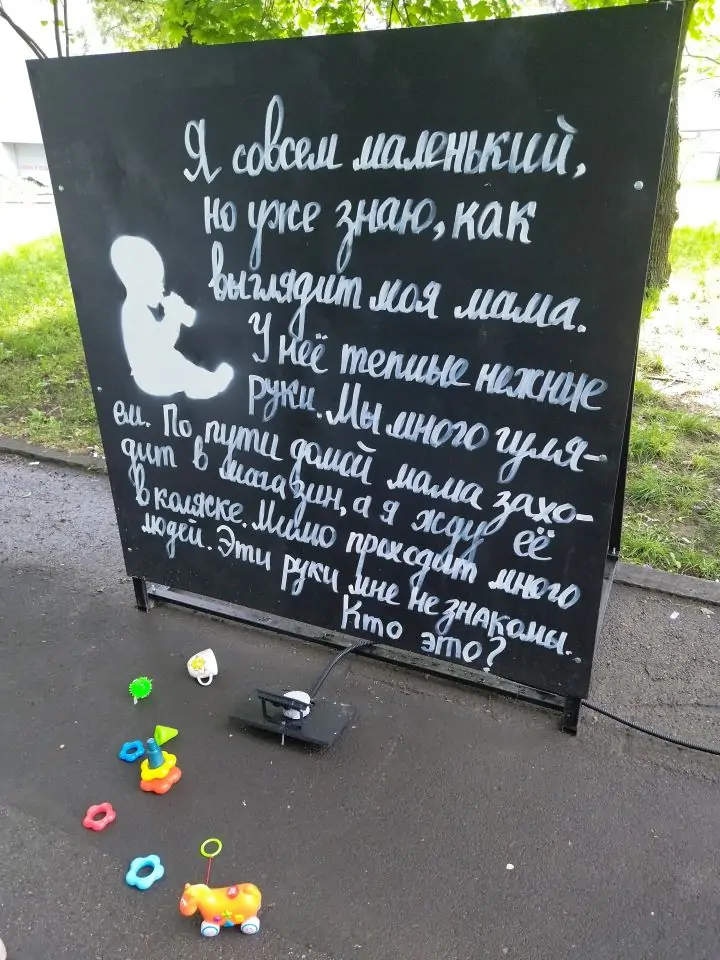 Я совсем маленький,
но уже знаю, как
выглядит моя мама.
У неё теплые нежные
руки. Мы много гуля-
ем. По пути домой мама захо-
дит в магазин, а я жду её
в коляске. Мимо проходит много
людей. Эти руки мне не знакомы..
Кто это?